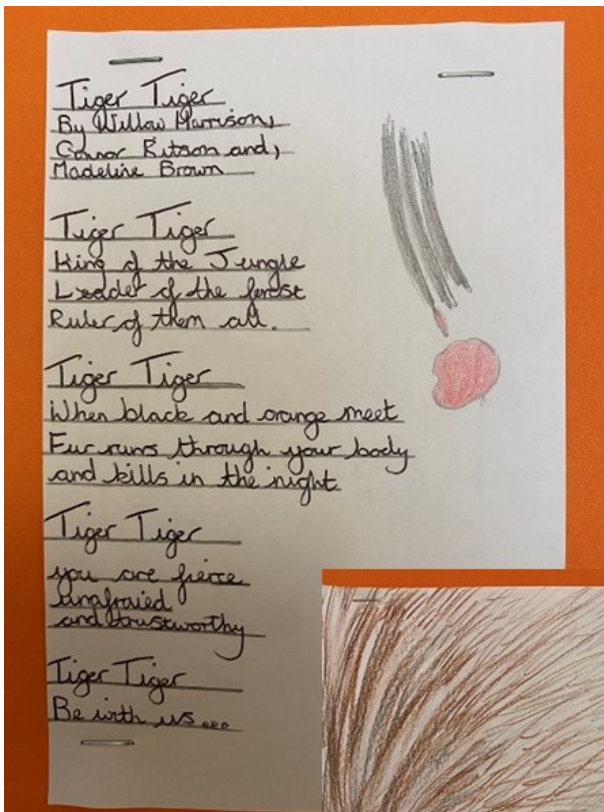 Tiger Tiger
By Willow Marrison,
Connor Ritson and,
Madeline Brown
Tiger Tiger
King of the Jungle
Leader of the forest
Ruler of them all.
Tiger Tiger
When black and orange meet
Fur runs through your body
and kills in the night
Tiger Tiger
you are fierce
unafraied
and trustworthy
Tiger Tiger
Be with us...